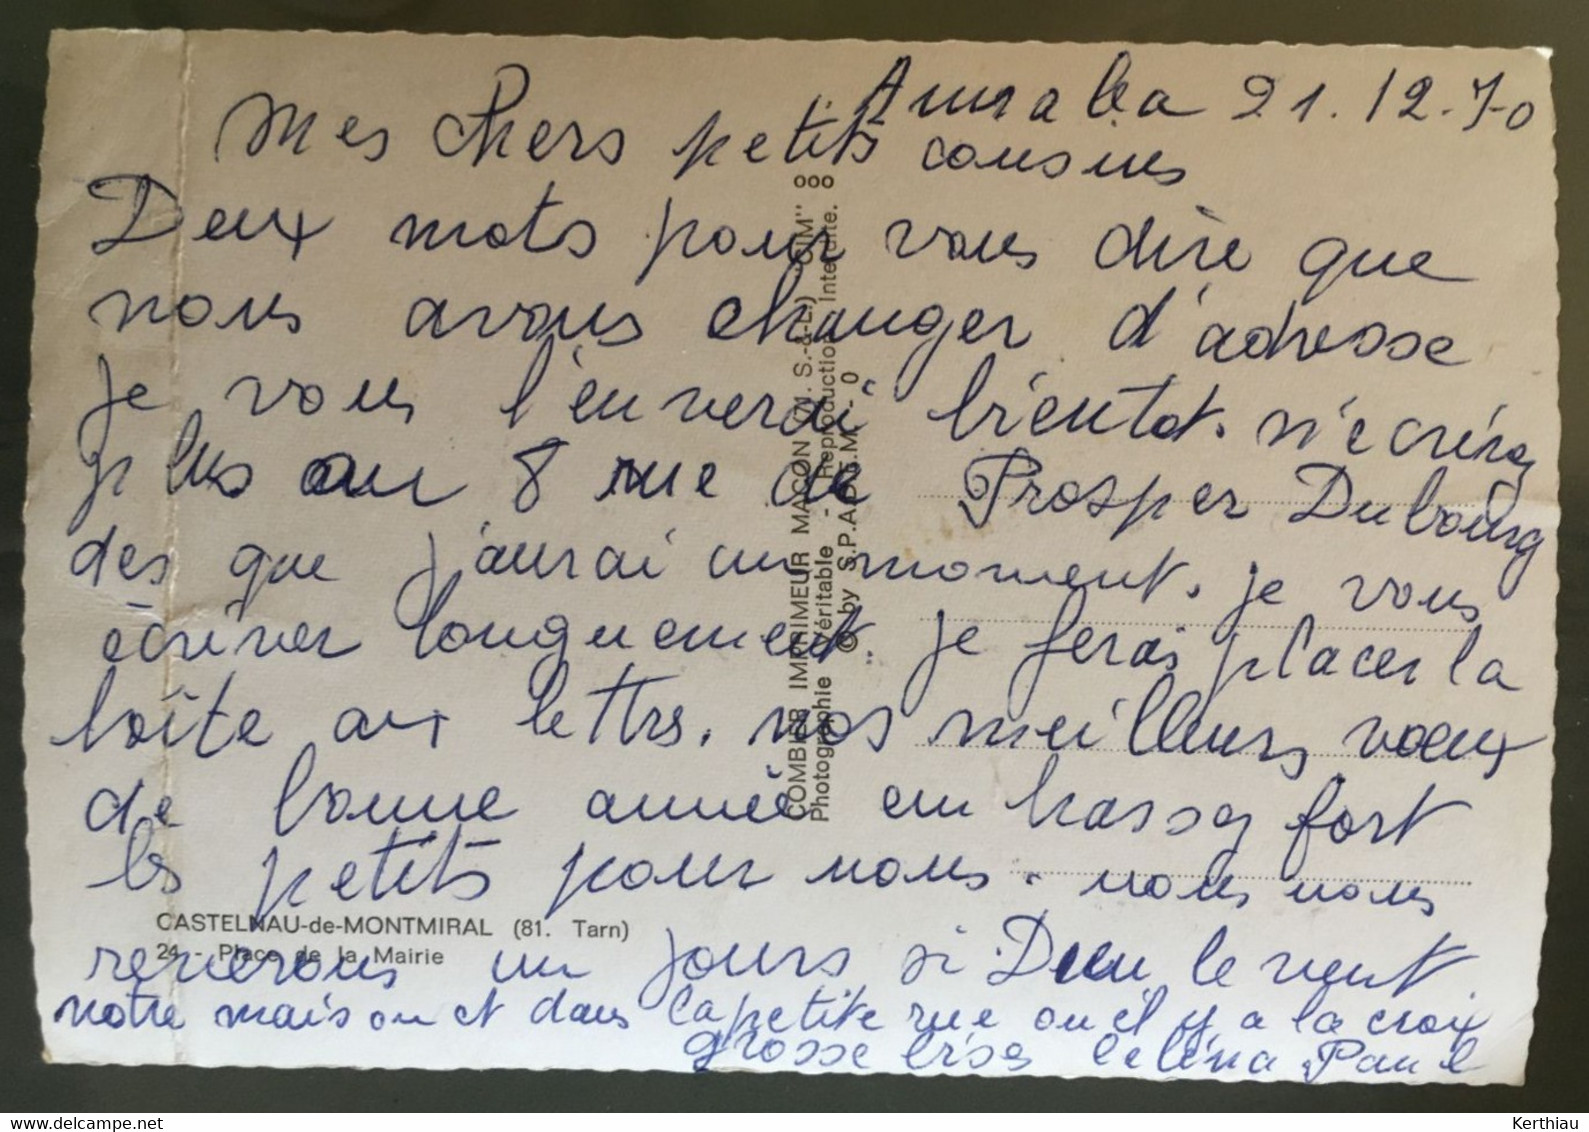 21.12.70
Mes chers petits cousins
Deux mots pour vous dire que
nous avons changer d'adresse
je vous l'enverai bientot. n'écriez
plus au 8 rue de Prosper Dubourg
des que j'aurai un moment. je vous
écriver longuement. je ferai placer la
boîte aux lettrs. nos meilleurs vœux
de bonne année embrassez fort
les petits pour nous. nous nous
reverons un jours si Dieu le veut
notre maison et dans la petite rue ou il y a la croix
grosse bises Celéna Paul
CASTELNAU-de-MONTMIRAL (81. Tarn)
24 - Place de la Mairie
COMBIER IMPRIMEUR MACON (M. S.-&-L.) "CIM" ooo
Photographie Véritable - Reproduction Interdite.
© by S.P.A.D.E.M. - 0
www.delcampe.net
Kerthiau